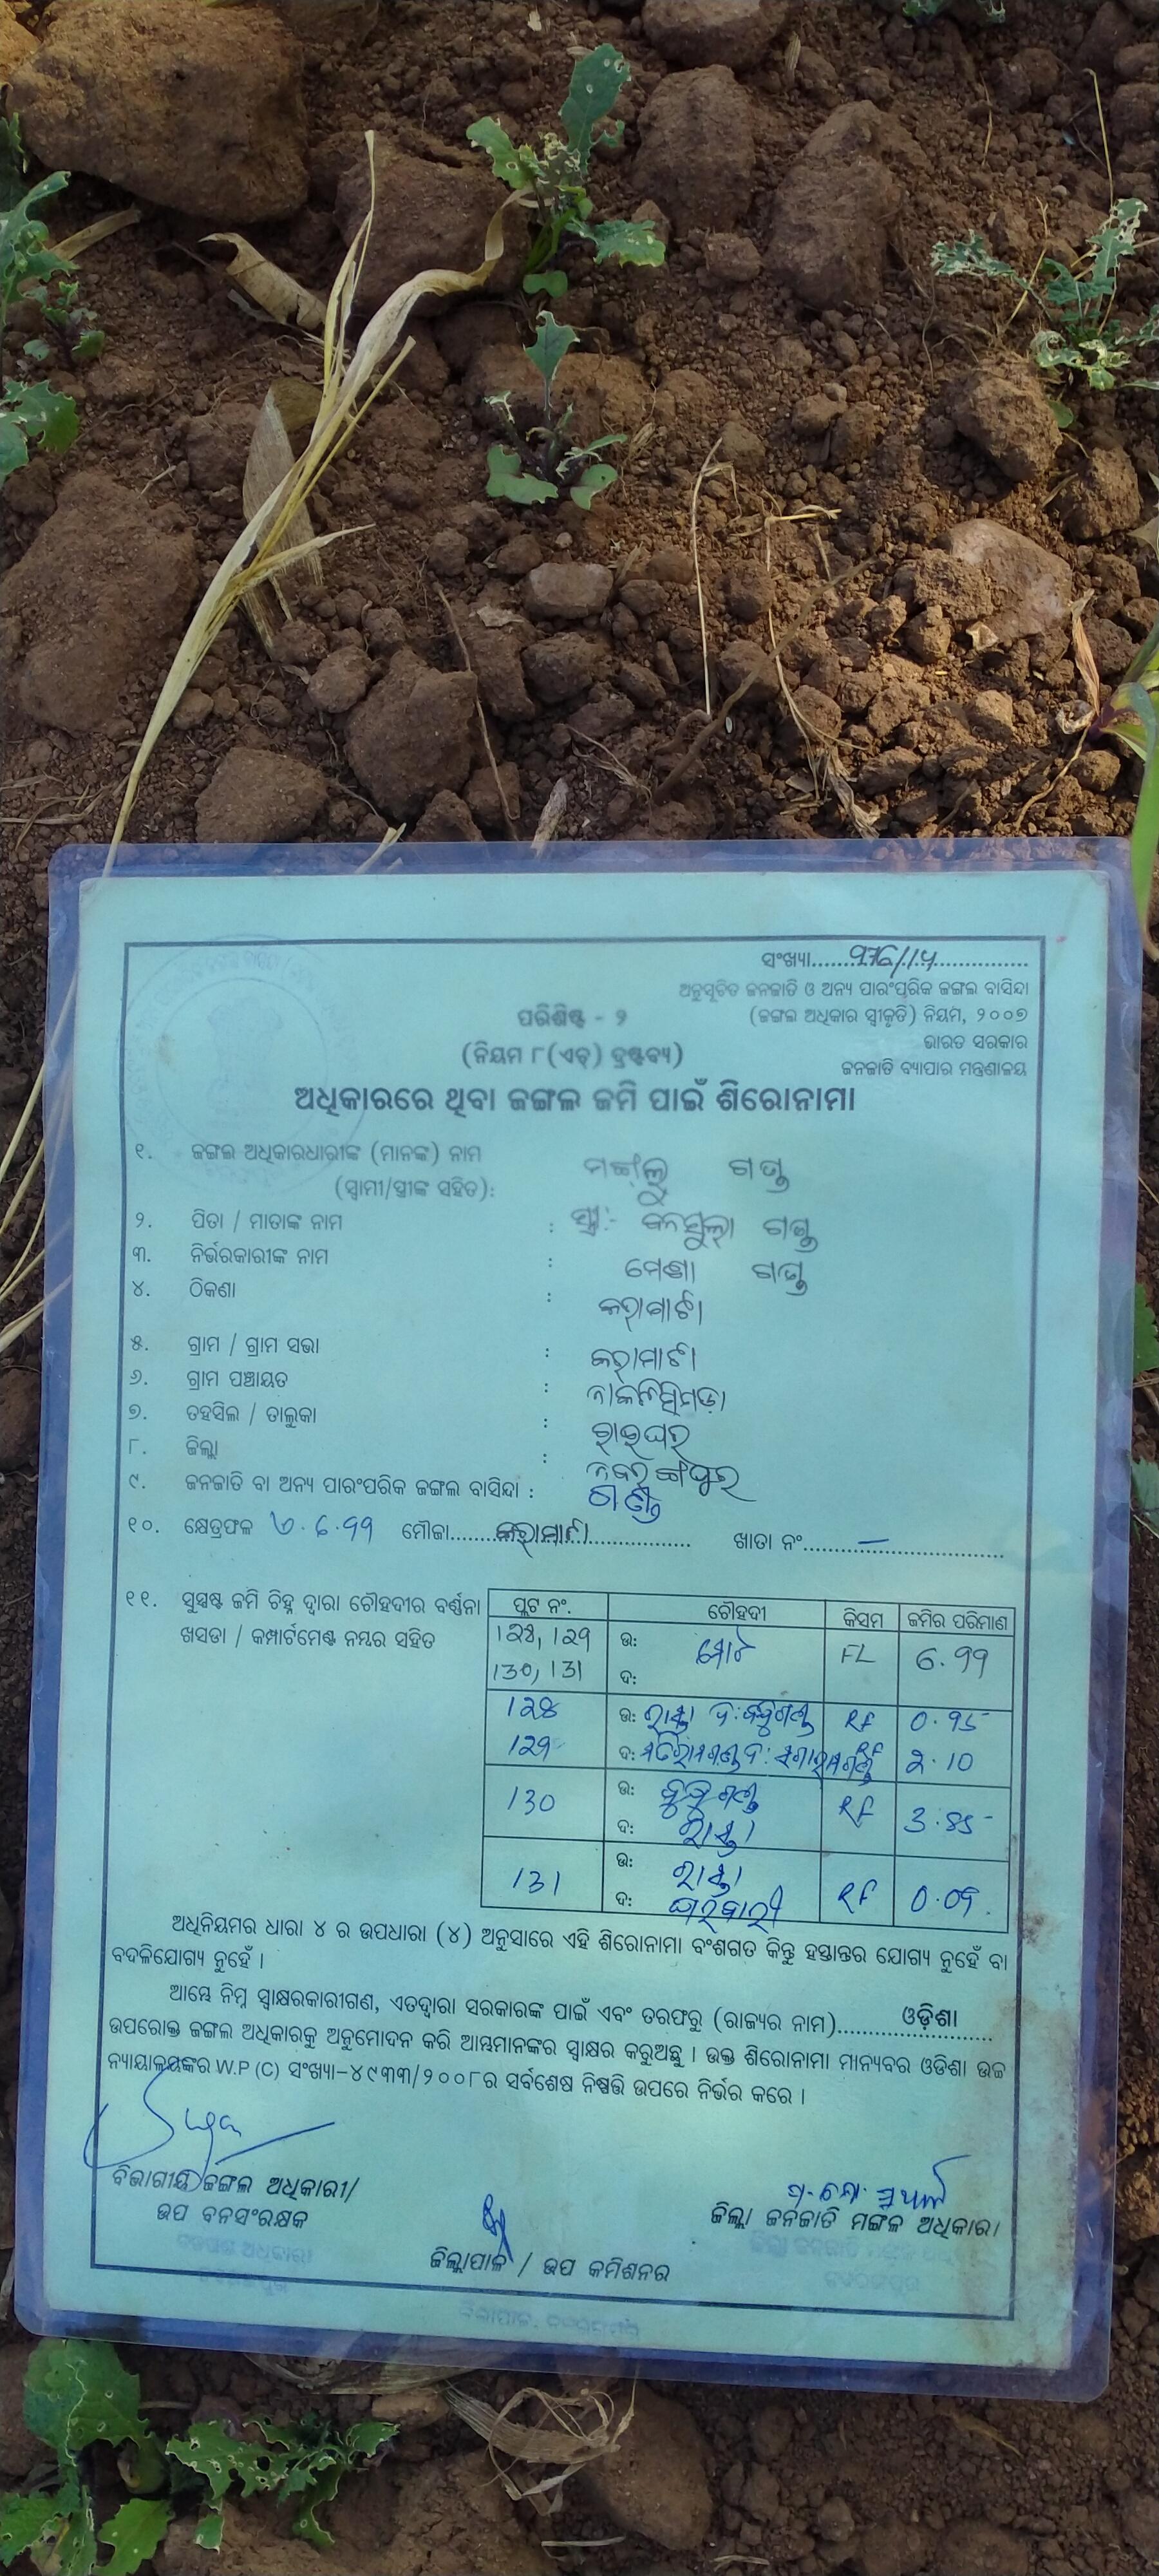 ସଂଖ୍ୟା....................
ଅନୁସୂଚିତ ଜନଜାତି ଓ ଅନ୍ୟ ପାରଂପରିକ ଜଙ୍ଗଲ ବାସିନ୍ଦା
ପରିଶିଷ୍ଟ - ୨
(ଜଙ୍ଗଲ ଅଧିକାର ସ୍ୱୀକୃତି) ନିୟମ, ୨୦୦୭
ଭାରତ ସରକାର
(ନିୟମ ୮(ଏଚ୍) ଦ୍ରଷ୍ଟବ୍ୟ)
ଜନଜାତି ବ୍ୟାପାର ମନ୍ତ୍ରଣାଳୟ
ଅଧିକାରରେ ଥିବା ଜଙ୍ଗଲ ଜମି ପାଇଁ ଶିରୋନାମା
୧. ଜଙ୍ଗଲ ଅଧିକାରଧାରୀଙ୍କ (ମାନଙ୍କ) ନାମ
(ସ୍ୱାମୀ/ସ୍ତ୍ରୀଙ୍କ ସହିତ):
୨. ପିତା / ମାତାଙ୍କ ନାମ : ସ୍ତ୍ରୀ:-
୩. ନିର୍ଭରକାରୀଙ୍କ ନାମ :
୪. ଠିକଣା :
୫. ଗ୍ରାମ / ଗ୍ରାମ ସଭା : କରାମାଟୀ
୬. ଗ୍ରାମ ପଞ୍ଚାୟତ :
୭. ତହସିଲ / ତାଲୁକା : ରାଇଘର
୮. ଜିଲ୍ଲା : ନବରଙ୍ଗପୁର
୯. ଜନଜାତି ବା ଅନ୍ୟ ପାରଂପରିକ ଜଙ୍ଗଲ ବାସିନ୍ଦା : ଗଣ୍ଡ
୧୦. କ୍ଷେତ୍ରଫଳ 6.99 ମୌଜା....... କରାମାଟୀ ............ ଖାତା ନଂ...... – ............
୧୧. ସୁସ୍ପଷ୍ଟ ଜମି ଚିହ୍ନ ଦ୍ୱାରା ଚୌହଦୀର ବର୍ଣ୍ଣନା
ଖସଡା / କମ୍ପାର୍ଟମେଣ୍ଟ ନମ୍ବର ସହିତ
ପ୍ଲଟ ନଂ. ଚୌହଦୀ କିସମ ଜମିର ପରିମାଣ
128, 129 ଉ: ମୋଟ FL 6.99
130, 131 ଦ:
128 ଉ: ରାସ୍ତା RF 0.95
129 ଦ: RF 2.10
130 ଉ: RF 3.85
ଦ: ରାସ୍ତା
131 ଉ: ରାସ୍ତା RF 0.09
ଦ: ଘରବାରୀ
ଅଧିନିୟମର ଧାରା ୪ ର ଉପଧାରା (୪) ଅନୁସାରେ ଏହି ଶିରୋନାମା ବଂଶଗତ କିନ୍ତୁ ହସ୍ତାନ୍ତର ଯୋଗ୍ୟ ନୁହେଁ ବା
ବଦଳିଯୋଗ୍ୟ ନୁହେଁ ।
ଆମ୍ଭେ ନିମ୍ନ ସ୍ୱାକ୍ଷରକାରୀଗଣ, ଏତଦ୍ୱାରା ସରକାରଙ୍କ ପାଇଁ ଏବଂ ତରଫରୁ (ରାଜ୍ୟର ନାମ)........ ଓଡ଼ିଶା ........
ଉପରୋକ୍ତ ଜଙ୍ଗଲ ଅଧିକାରକୁ ଅନୁମୋଦନ କରି ଆମ୍ଭମାନଙ୍କର ସ୍ୱାକ୍ଷର କରୁଅଛୁ । ଉକ୍ତ ଶିରୋନାମା ମାନ୍ୟବର ଓଡିଶା ଉଚ୍ଚ
ନ୍ୟାୟାଳୟଙ୍କର W.P (C) ସଂଖ୍ୟା-୪୯୩୩/୨୦୦୮ର ସର୍ବଶେଷ ନିଷ୍ପତ୍ତି ଉପରେ ନିର୍ଭର କରେ ।
ବିଭାଗୀୟ ଜଙ୍ଗଲ ଅଧିକାରୀ/
ଉପ ବନସଂରକ୍ଷକ
ଜିଲ୍ଲା ଜନଜାତି ମଙ୍ଗଳ ଅଧିକାରୀ
ଜିଲ୍ଲାପାଳ / ଉପ କମିଶନର